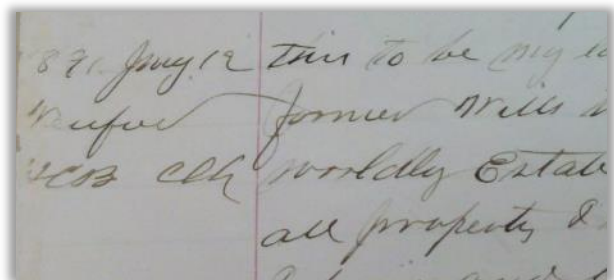 891. Jany 12 this to be my
former Wills
Clk worldly Estate
all property I